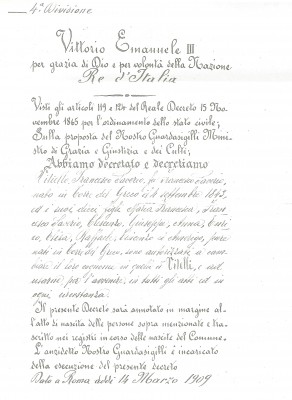 4ª Divisione
Vittorio Emanuele III
per grazia di Dio e per volontà della Nazione
Re d'Italia
Visti gli articoli 119 e 120 del Reale Decreto 15 No=
vembre 1865 per l'ordinamento dello stato civile;
Sulla proposta del Nostro Guardasigilli Mini=
stro di Grazia e Giustizia e dei Culti;
Abbiamo decretato e decretiamo
Francesco Saverio, fu Francesco Saverio,
nato in Torre del Greco il 4 settembre 1843,
ed i suoi dieci figli Maria Francesca, Fran=
cesco Saverio, Vincenzo, Giuseppe, Anna, Enri=
co, Luisa, Raffaele,
nati in Torre del Greco, sono autorizzati a cam=
biare il loro cognome in quello di Titelli, e ad
usarne per l'avvenire in tutti gli atti ed in
ogni circostanza.
Il presente Decreto sarà annotato in margine al=
l'atto di nascita delle persone sopra menzionate e tra=
scritto nei registri in corso delle nascite del Comune.
L'anzidetto Nostro Guardasigilli è incaricato
della esecuzione del presente decreto
Dato a Roma addì 14 Marzo 1909